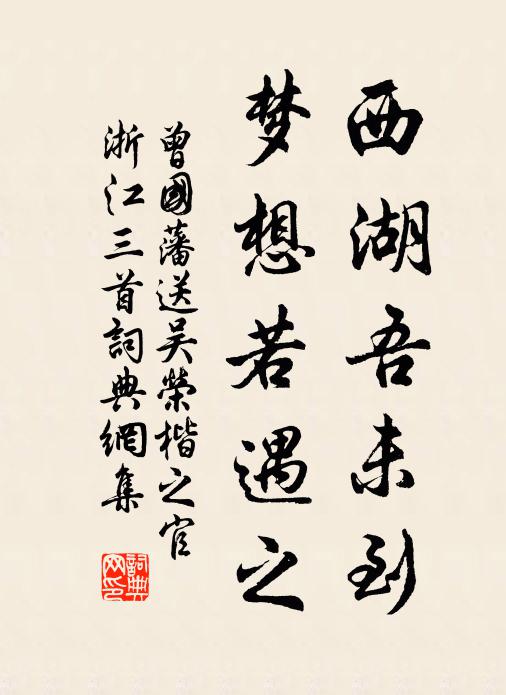 西湖吾未到
梦想若遇之
曾國藩送吴榮楷之官
浙江三首詞典網集
詞典网印